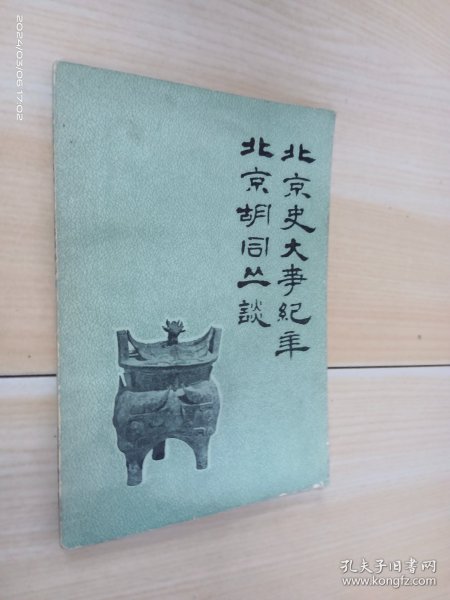 北京史大事紀年
北京胡同丛談
2024/03/06 17:02
孔夫子旧书网
www.kongfz.com